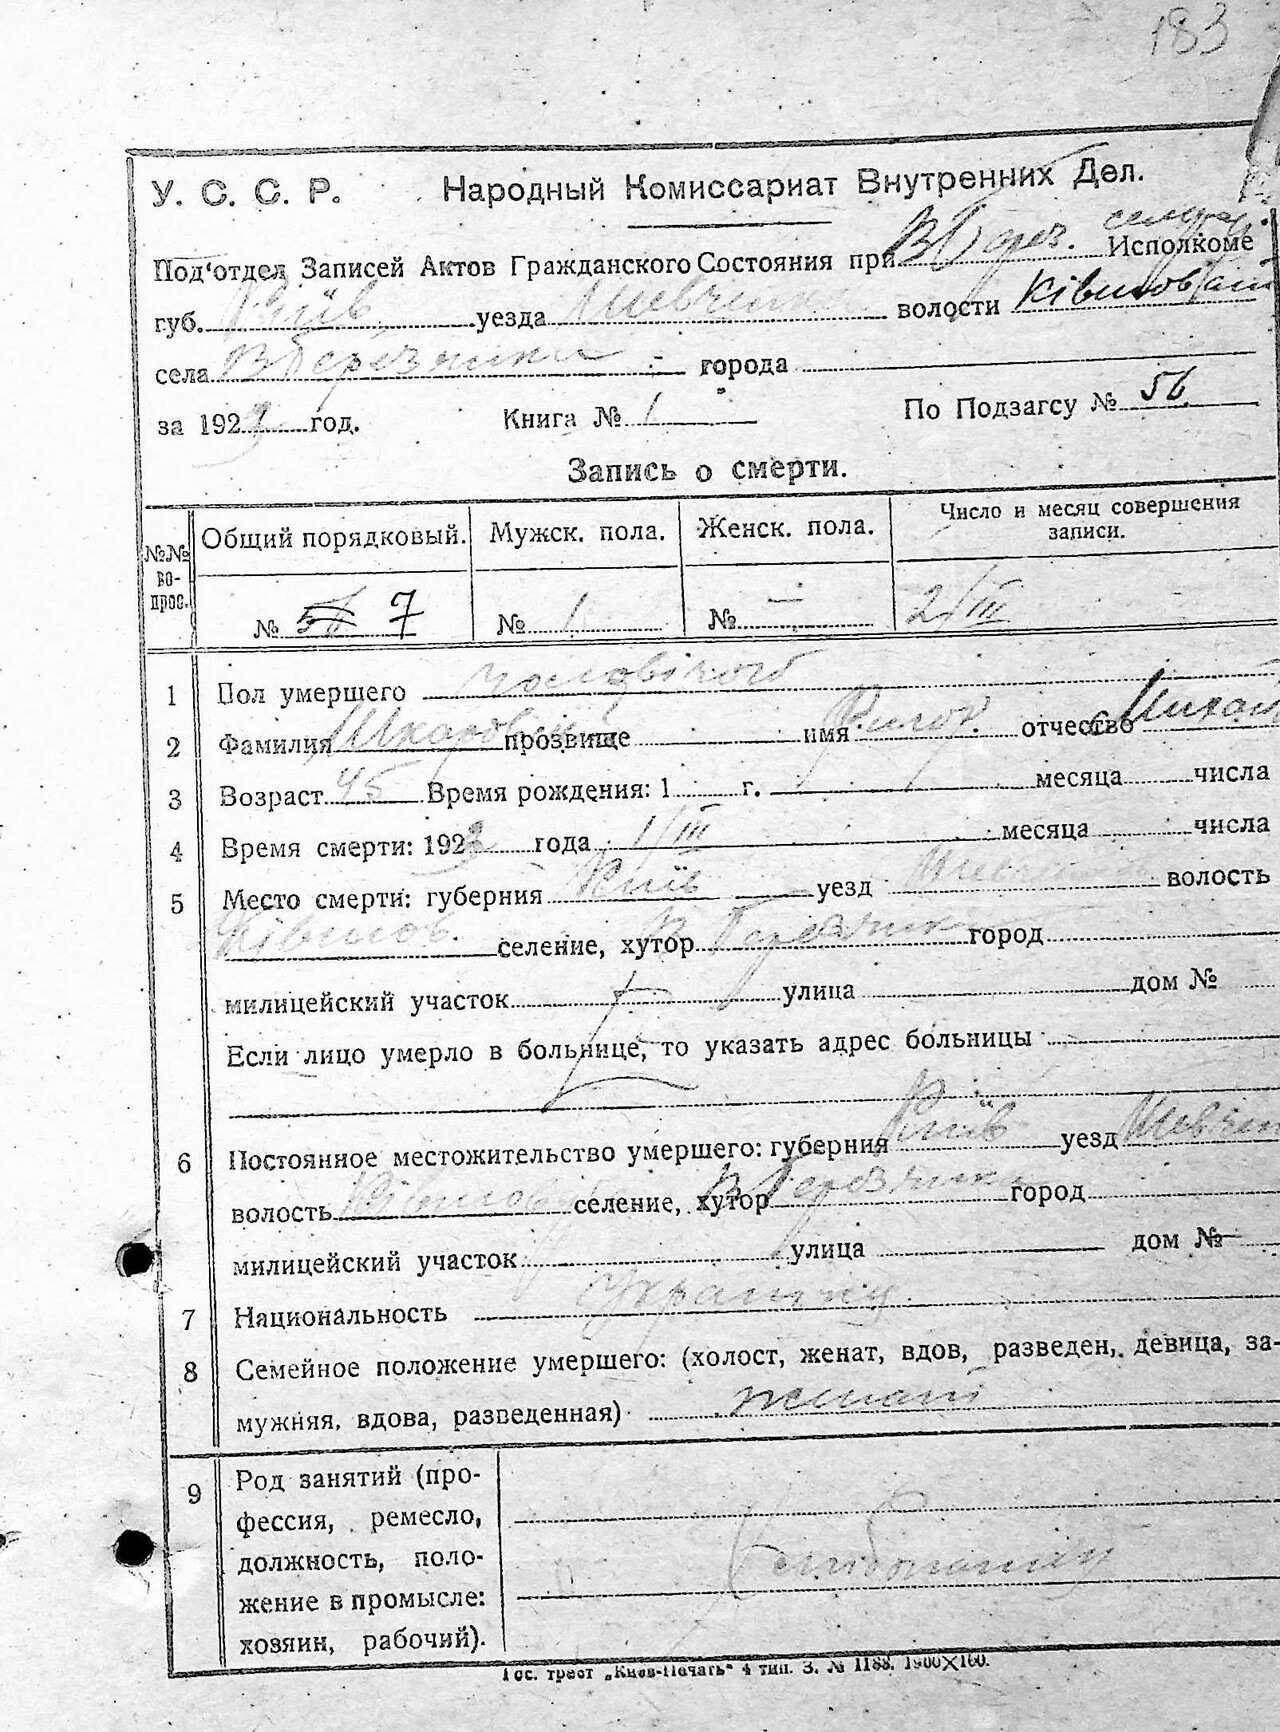 183
У. С. С. Р. Народный Комиссариат Внутренних Дел.
Под'отдел Записей Актов Гражданского Состояния при В Береч. Исполкоме
губ. Київ уезда Шевченк волости
села В Березянки - города
за 1923 год. Книга № 1 По Подзагсу № 56
Запись о смерти.
№№ вопрос. Общий порядковый. Мужск. пола. Женск. пола. Число и месяц совершения записи.
№ 56 7 № 1 № — 2/III
1 Пол умершего чоловічого
2 Фамилия прозвище имя отчество Михай
3 Возраст 45 Время рождения: 1 г. месяца числа
4 Время смерти: 1923 года 1/III месяца числа
5 Место смерти: губерния Київ уезд волость
селение, хутор В Березянк город
милицейский участок улица дом №
Если лицо умерло в больнице, то указать адрес больницы
6 Постоянное местожительство умершего: губерния Київ уезд Шевчен
волость селение, хутор В Березянки город
милицейский участок улица дом №
7 Национальность Українец
8 Семейное положение умершего: (холост, женат, вдов, разведен, девица, за-
мужняя, вдова, разведенная) женат
9 Род занятий (про-
фессия, ремесло,
должность, поло-
жение в промысле:
хозяин, рабочий).
Гос. трест „Киев-Печать“ 4 тип. З. № 1188. 1900×100.